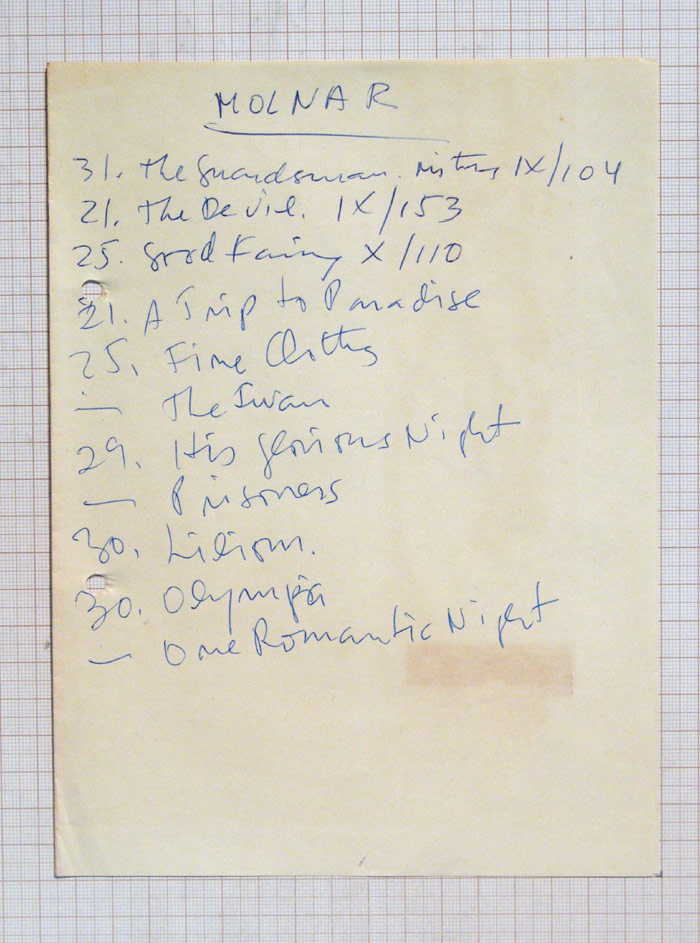 MOLNAR
31. The Guardsman. IX/104
21. The Devil. IX/153
25. Good Fairy X/110
21. A Trip to Paradise
25. Fine Clothes
— The Swan
29. His Glorious Night
— Prisoners
30. Liliom.
30. Olympia
— One Romantic Night